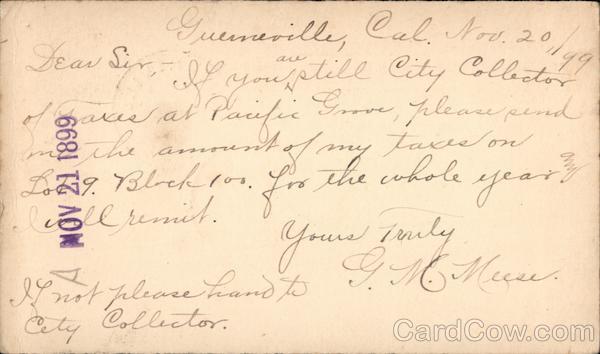 Guerneville, Cal. Nov. 20/99
Dear Sir,-
If you are still City Collector
of Taxes at Pacific Grove, please send
me the amount of my taxes on
Lot 9. Block 100. for the whole year and
I will remit.
Yours Truly
G. M. Meese.
If not please hand to
City Collector.
A NOV 21 1899
CardCow.com